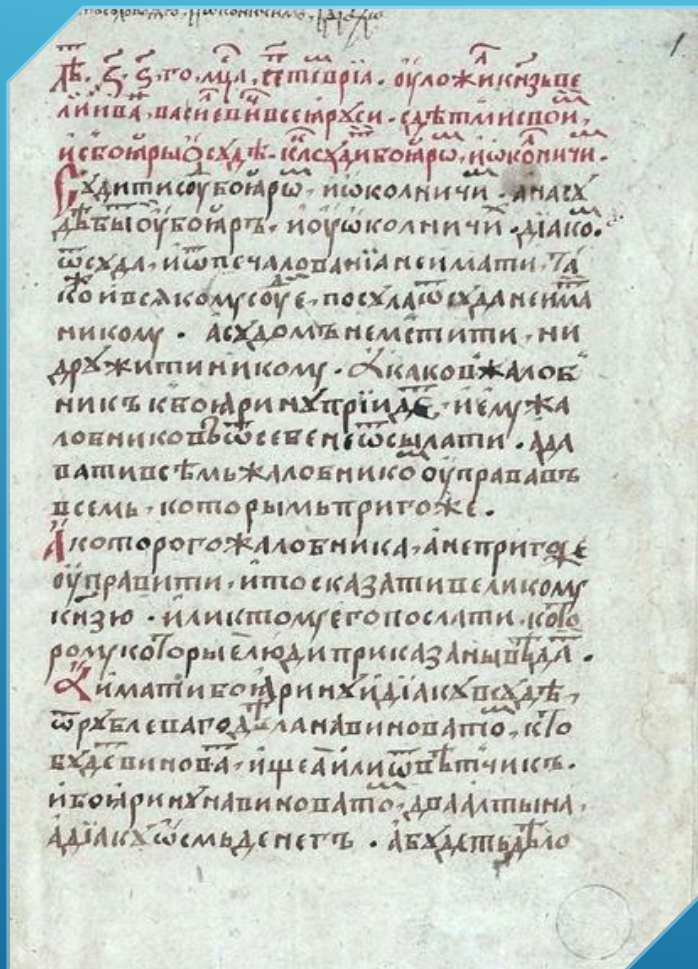 лѣⷮ. ҂ЗЅ҃. го, мцⷭ҇а, сеⷫ҇тевриа. оуложиⷧ кнѕь ве
ликиⷤ иваⷩ, васиⷧевиⷱ҇ всеꙗ рꙋси. с дѣтми своиⷨ,
и с боꙗры ѡ сꙋдѣ. каⷦ҇ сꙋдитⷮ боꙗроⷨ, и ѡкоⷧничиⷨ.
Сꙋдити сⷣ҇ѹ боꙗроⷨ, и ѡколничиⷨ. а на сꙋ
дѣ быⷮ ѹ боꙗръ, и оу ѡколничиⷯ диакоⷨ.
а посꙋла боꙗроⷨ
ѿ сꙋда, и ѿ печалованїа не имати. та
коⷤ и всякомꙋ сѹⷣе, посꙋла ѿ сꙋда не имаⷮ
никомꙋ. а сꙋдомъ не мстити, ни
дрꙋжити никомꙋ. а каков жалоб
никъ к боꙗринꙋ прїидеⷮ, и емꙋ жа
лобниковъ ѿ себе не ѿсылати. а да
вати всѣмъ жалобникоⷨ оуправа въ
всемь, которымъ пригоже.
А которого жалобника, а не пригоже
оуправити, и то сказати великомꙋ
кнѕю. или к томꙋ его послати, котⷪ
ромꙋ которые люди приказаны вѣдаⷮ.
А имати боꙗринꙋ и дїакꙋ в сꙋдѣ,
ѿ рꙋблеваго дѣла на виноватоⷨ, кто
бꙋдеⷮ виноваⷮ, ищеа или ѿвѣтчикъ.
и боꙗринꙋ на виноватоⷨ, два алтына,
а дїакꙋ ѡсмь денегъ. а бꙋдетъ дѣло